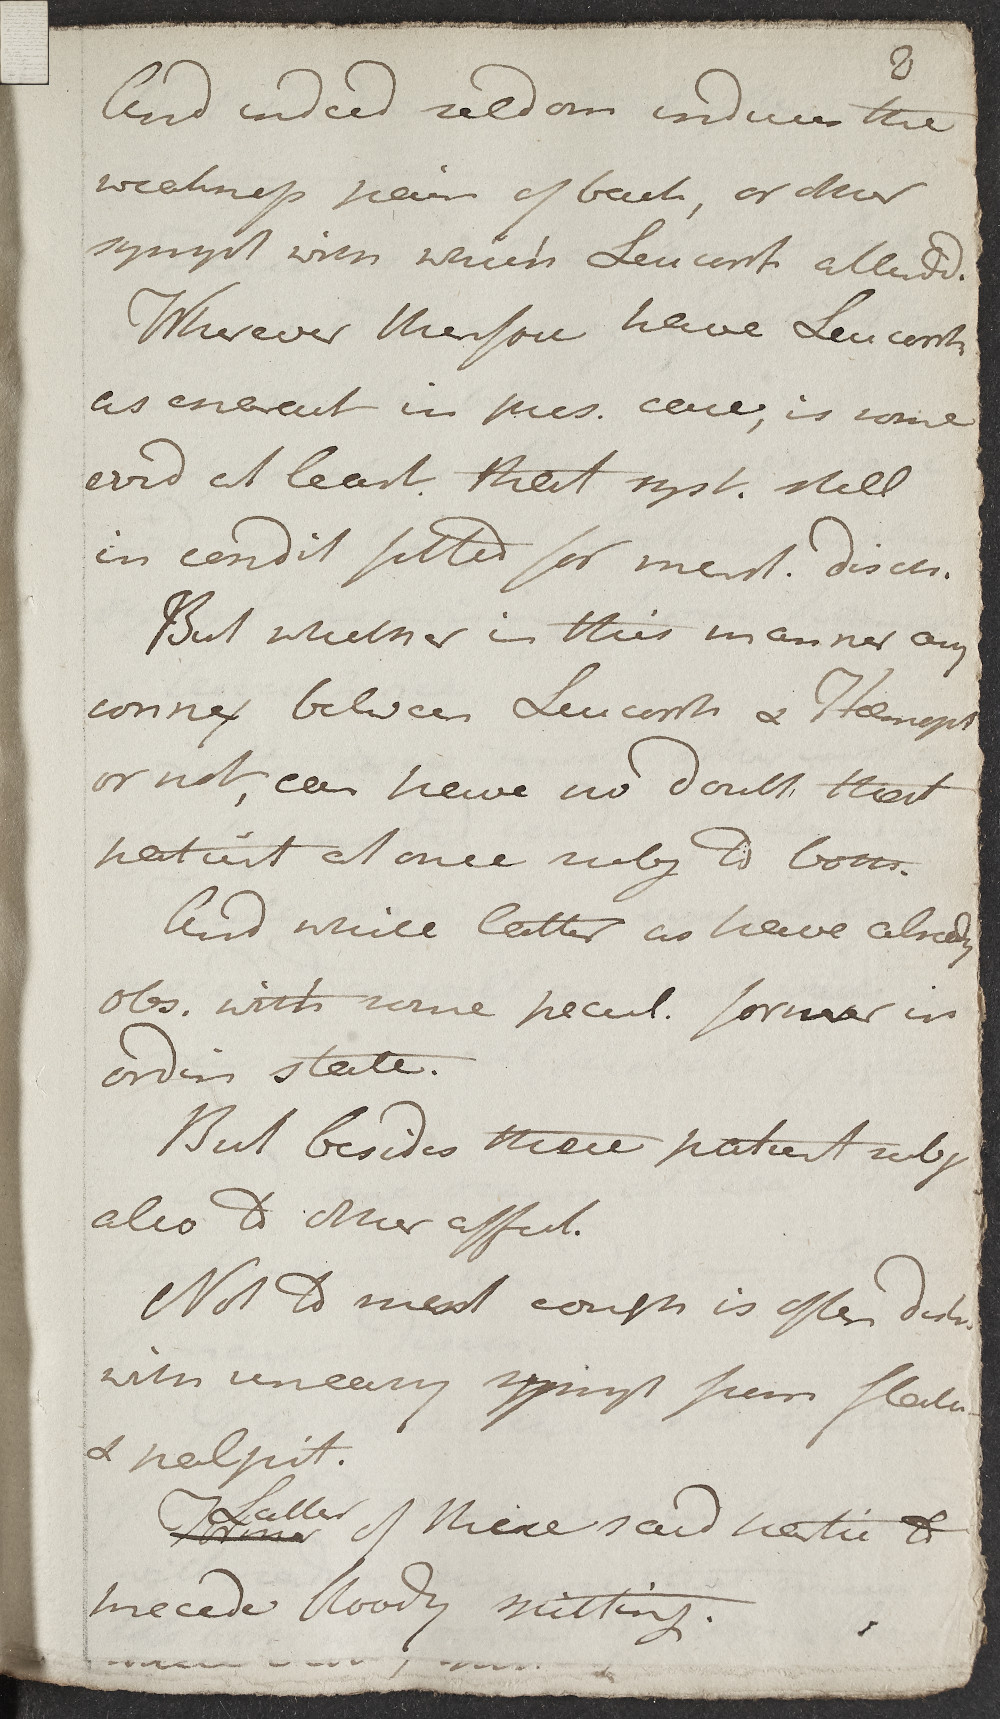 8
And indeed seldom induces the
weakness pain of back, or other
sympt with which Leucorrh attendd.
Wherever therefore have Leucorrh
as enevent in pres. case, is some
evid at least that syst. still
in condit fitted for menst. disch.
But whether in this manner any
connex between Leucorrh & Hæmopt
or not, can have no doubt that
patient at once subj to both.
And while latter as have already
obs. with some pecul. former in
ordin state.
But besides these patient subj
also to other affect.
Not to ment cough is often distr.
with uneasy sympt from flatu-
& palpit.
Latter
Former of these said partic to
precede bloody spitting.